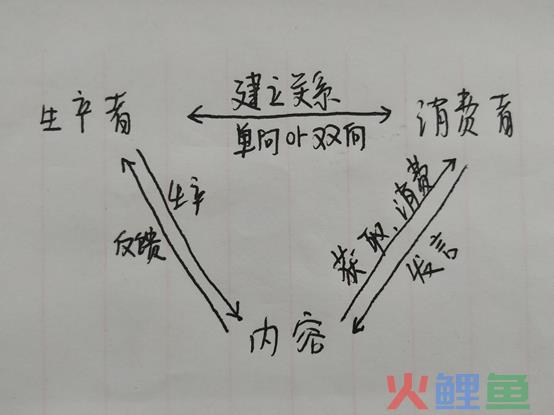 建立关系
生产者
消费者
单向or双向
生产
反馈
获取、消费
发言
内容
火鲤鱼